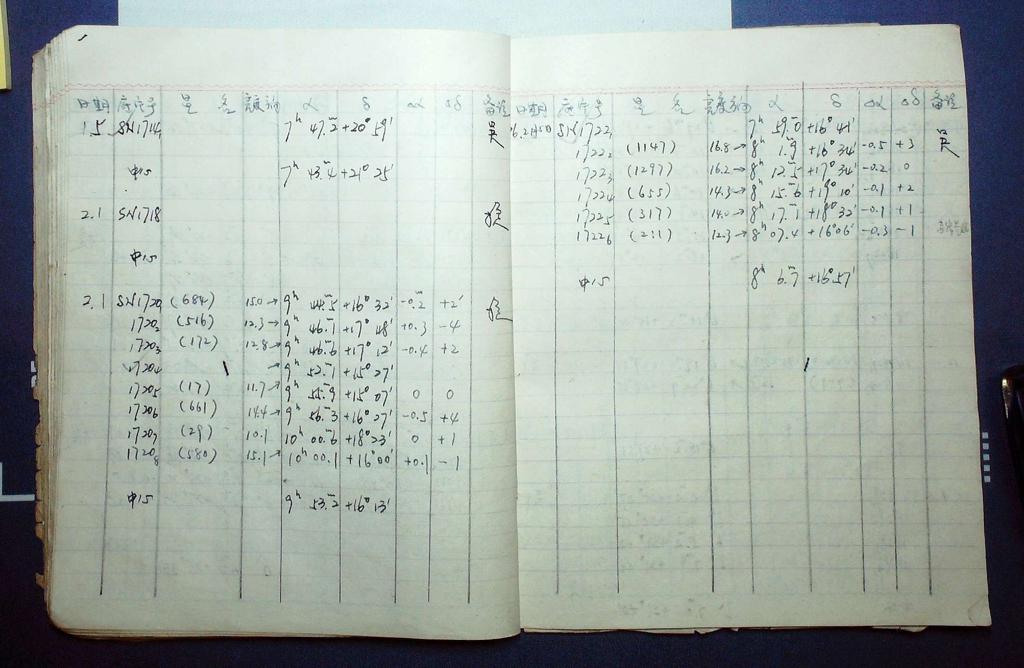 日期 序号 星名 亮度 α δ Δα Δδ 备注
1.5 SN1714₁ 7ʰ 47.ᵐ2 +20° 59′ 吴
中心 7ʰ 43.ᵐ4 +21° 25′
2.1 SN1718
中心
2.1 SN1720₁ (684) 15.0→ 9ʰ 44.ᵐ5 +16° 32′ -0.ᵐ2 +2′
1720₂ (516) 12.3→ 9ʰ 46.ᵐ1 +17° 48′ +0.3 -4
1720₃ (172) 12.8→ 9ʰ 46.ᵐ6 +17° 12′ -0.4 +2
1720₄ → 9ʰ 52.ᵐ1 +15° 27′
1720₅ (17) 11.7→ 9ʰ 55.ᵐ9 +15° 07′ 0 0
1720₆ (661) 14.4→ 9ʰ 56.ᵐ3 +16° 27′ -0.5 +4
1720₇ (29) 10.1 10ʰ 00.ᵐ6 +18° 23′ 0 +1
1720₈ (580) 15.1→ 10ʰ 00.1 +16° 00′ +0.1 -1
中心 9ʰ 53.ᵐ2 +16° 13′
日期 序号 星名 亮度 α δ Δα Δδ 备注
SN1722₁ 7ʰ 59.ᵐ0 +16° 41′ 吴
1722₂ (1147) 16.8→ 8ʰ 1.ᵐ9 +16° 34′ -0.5 +3
1722₃ (1297) 16.2→ 8ʰ 12.ᵐ5 +17° 34′ -0.2 0
1722₄ (655) 14.3→ 8ʰ 15.ᵐ6 +19° 10′ -0.1 +2
1722₅ (317) 14.0→ 8ʰ 17.ᵐ1 +18° 32′ -0.1 +1
1722₆ (211) 12.3→ 8ʰ 07.ᵐ4 +16° 06′ -0.3 -1
中心 8ʰ 6.ᵐ7 +16° 57′